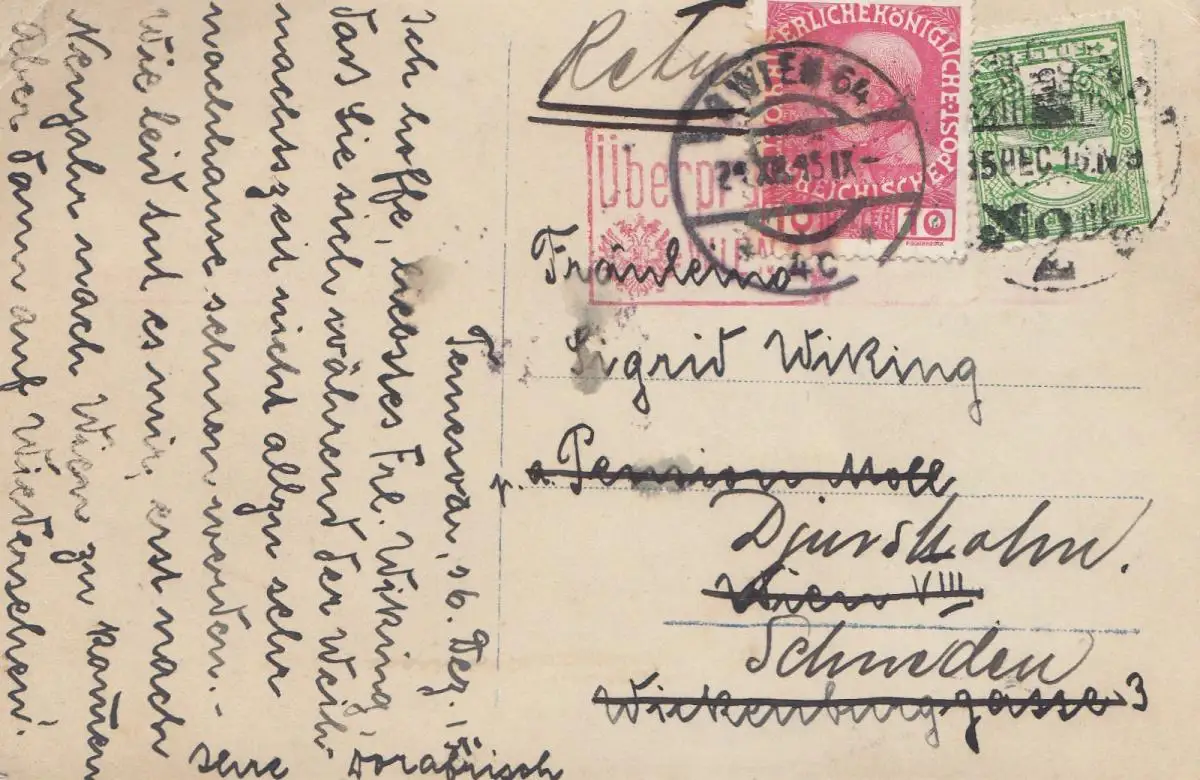 Temesvár, 26. Dez. 15
Ich hoffe, liebstes Frl. Wiking,
dass Sie sich während der Weih-
nachtszeit nicht allzu sehr
nachhause sehnen werden.-
Wie leid tut es mir, erst nach
Neujahr nach Wien zu kommen
aber dann auf Wiedersehen!
Ihre Dora Frisch
Retour
KAISERLICHE KÖNIGLICHE
ÖSTERREICHISCHE POST
10 10
WIEN 64
XII.15 IX-
4c
DEC
Überprüft
Fräulein
Sigrid Wiking
p. a. Pension Moll
Djursholm.
Wien VIII
Schweden
Wickenburggasse 3